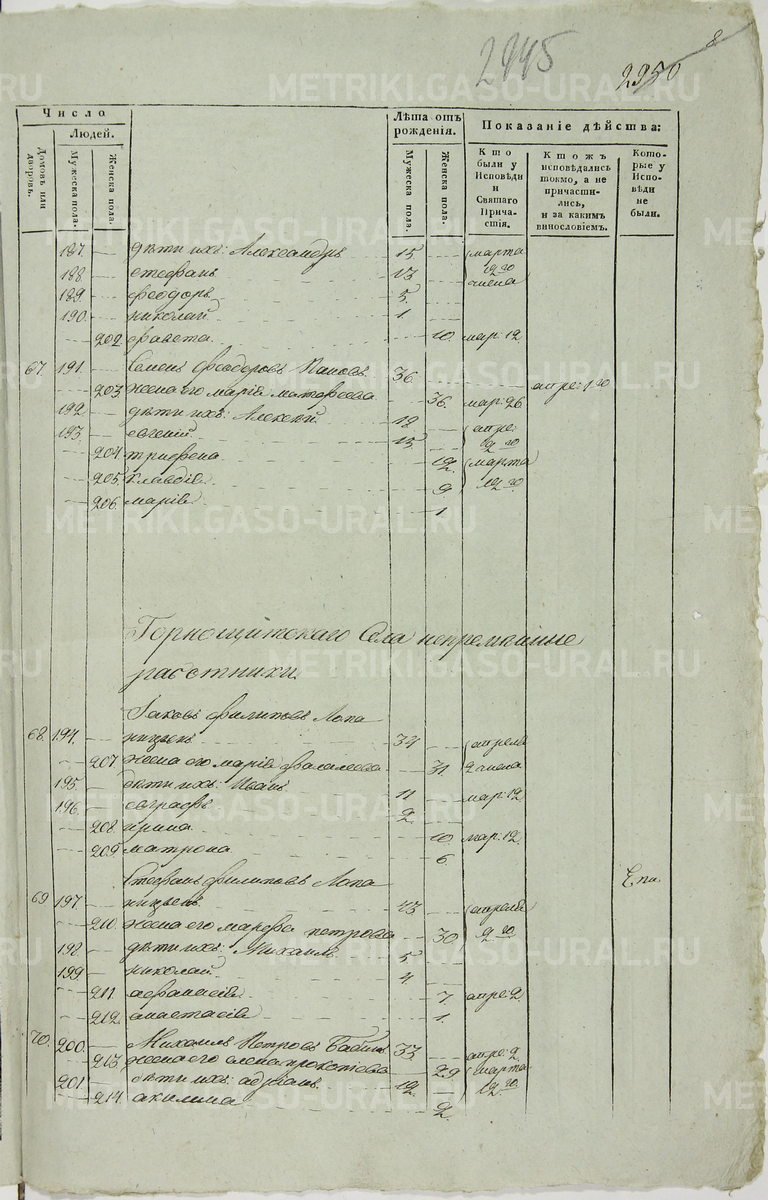 2945
2950
Число
Людей.
Домовъ или дворовъ.
Мужеска пола.
Женска пола.
Лѣта отъ рожденія.
Мужеска пола.
Женска пола.
Показаніе дѣйства:
Кто были у Исповѣди и Святаго Причастія.
Ктожъ исповѣдались токмо, а не причастились, и за какимъ винословіемъ.
Которые у Исповѣди не были.
187. дѣти ихъ: Александръ 15 марта
188. стефанъ 13 12го числа
189. феодоръ 5.
190. николай 1
202. 10. мар: 12.
67 191. Семенъ Феодоровъ Поповъ 36. апре: 1го
203 жена его марія матфеева 36. мар: 26
192. дѣти ихъ: Алексѣй 18 апре:
193. евгеній 15
204 трифена 12. марта
205. клавдія 9 12го
206. марія 1
Горнощитскаго Села непременные
работники
Іаковъ филиповъ Лопа
68. 194. ницынъ 34 апреля
207. жена его марія 31. 2 числа
195. дѣти ихъ: Иванъ 11 мар: 12
196. евграфъ 2.
208. ирина 10 мар: 12.
209. матрона 6.
Стефанъ филиповъ Лопа
69 197. ницынъ 43 апреля
210. жена его марфа петрова 30. 2го
198. дѣти ихъ: Михаилъ 5
199 николай 4.
211. афанасія 7. апре: 2.
212. анастасія 1.
70. 200. Михаилъ Петровъ 33 апре: 2.
213 жена его елена прокопьева 29 марта
201 дѣти ихъ: адріанъ 12. 12го
214. акилина 2.
METRIKI.GASO-URAL.RU